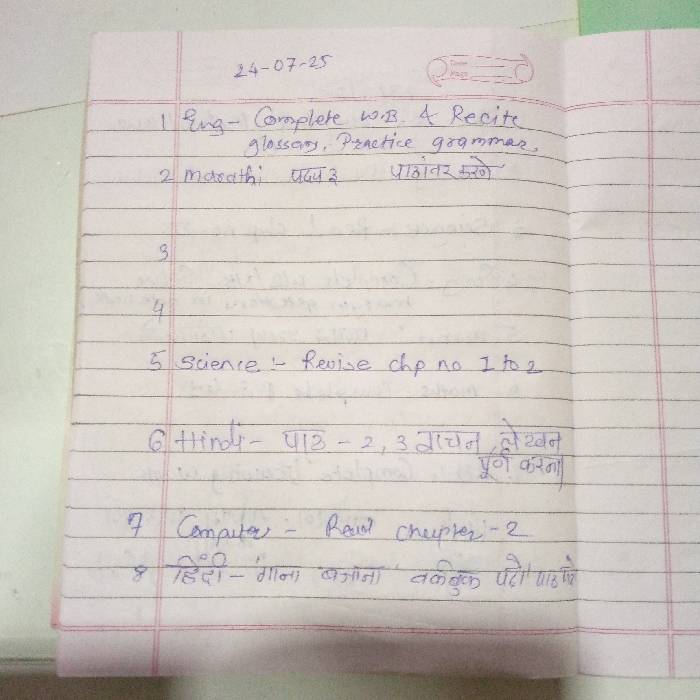 24-07-25
Date
Page
1 Eng - Complete W.B. & Recite
glossary, Practice grammar,
2 Marathi पद्य 3 पाठांतर करणे
3
4
5 Science :- Revise chp no 1 to 2
6 Hindi - पाठ - 2, 3 वाचन, लेखन
पूर्ण करना
7 Computer :- Read chapter - 2
8 हिंदी - गाना बजाना वर्कबुक पाठ